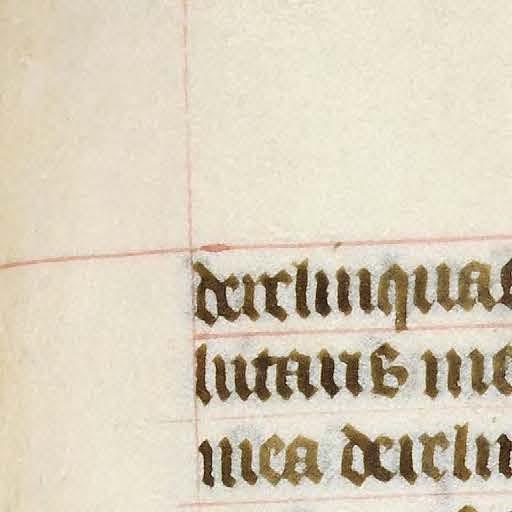 derelinquas
lutaris me
mea dereli